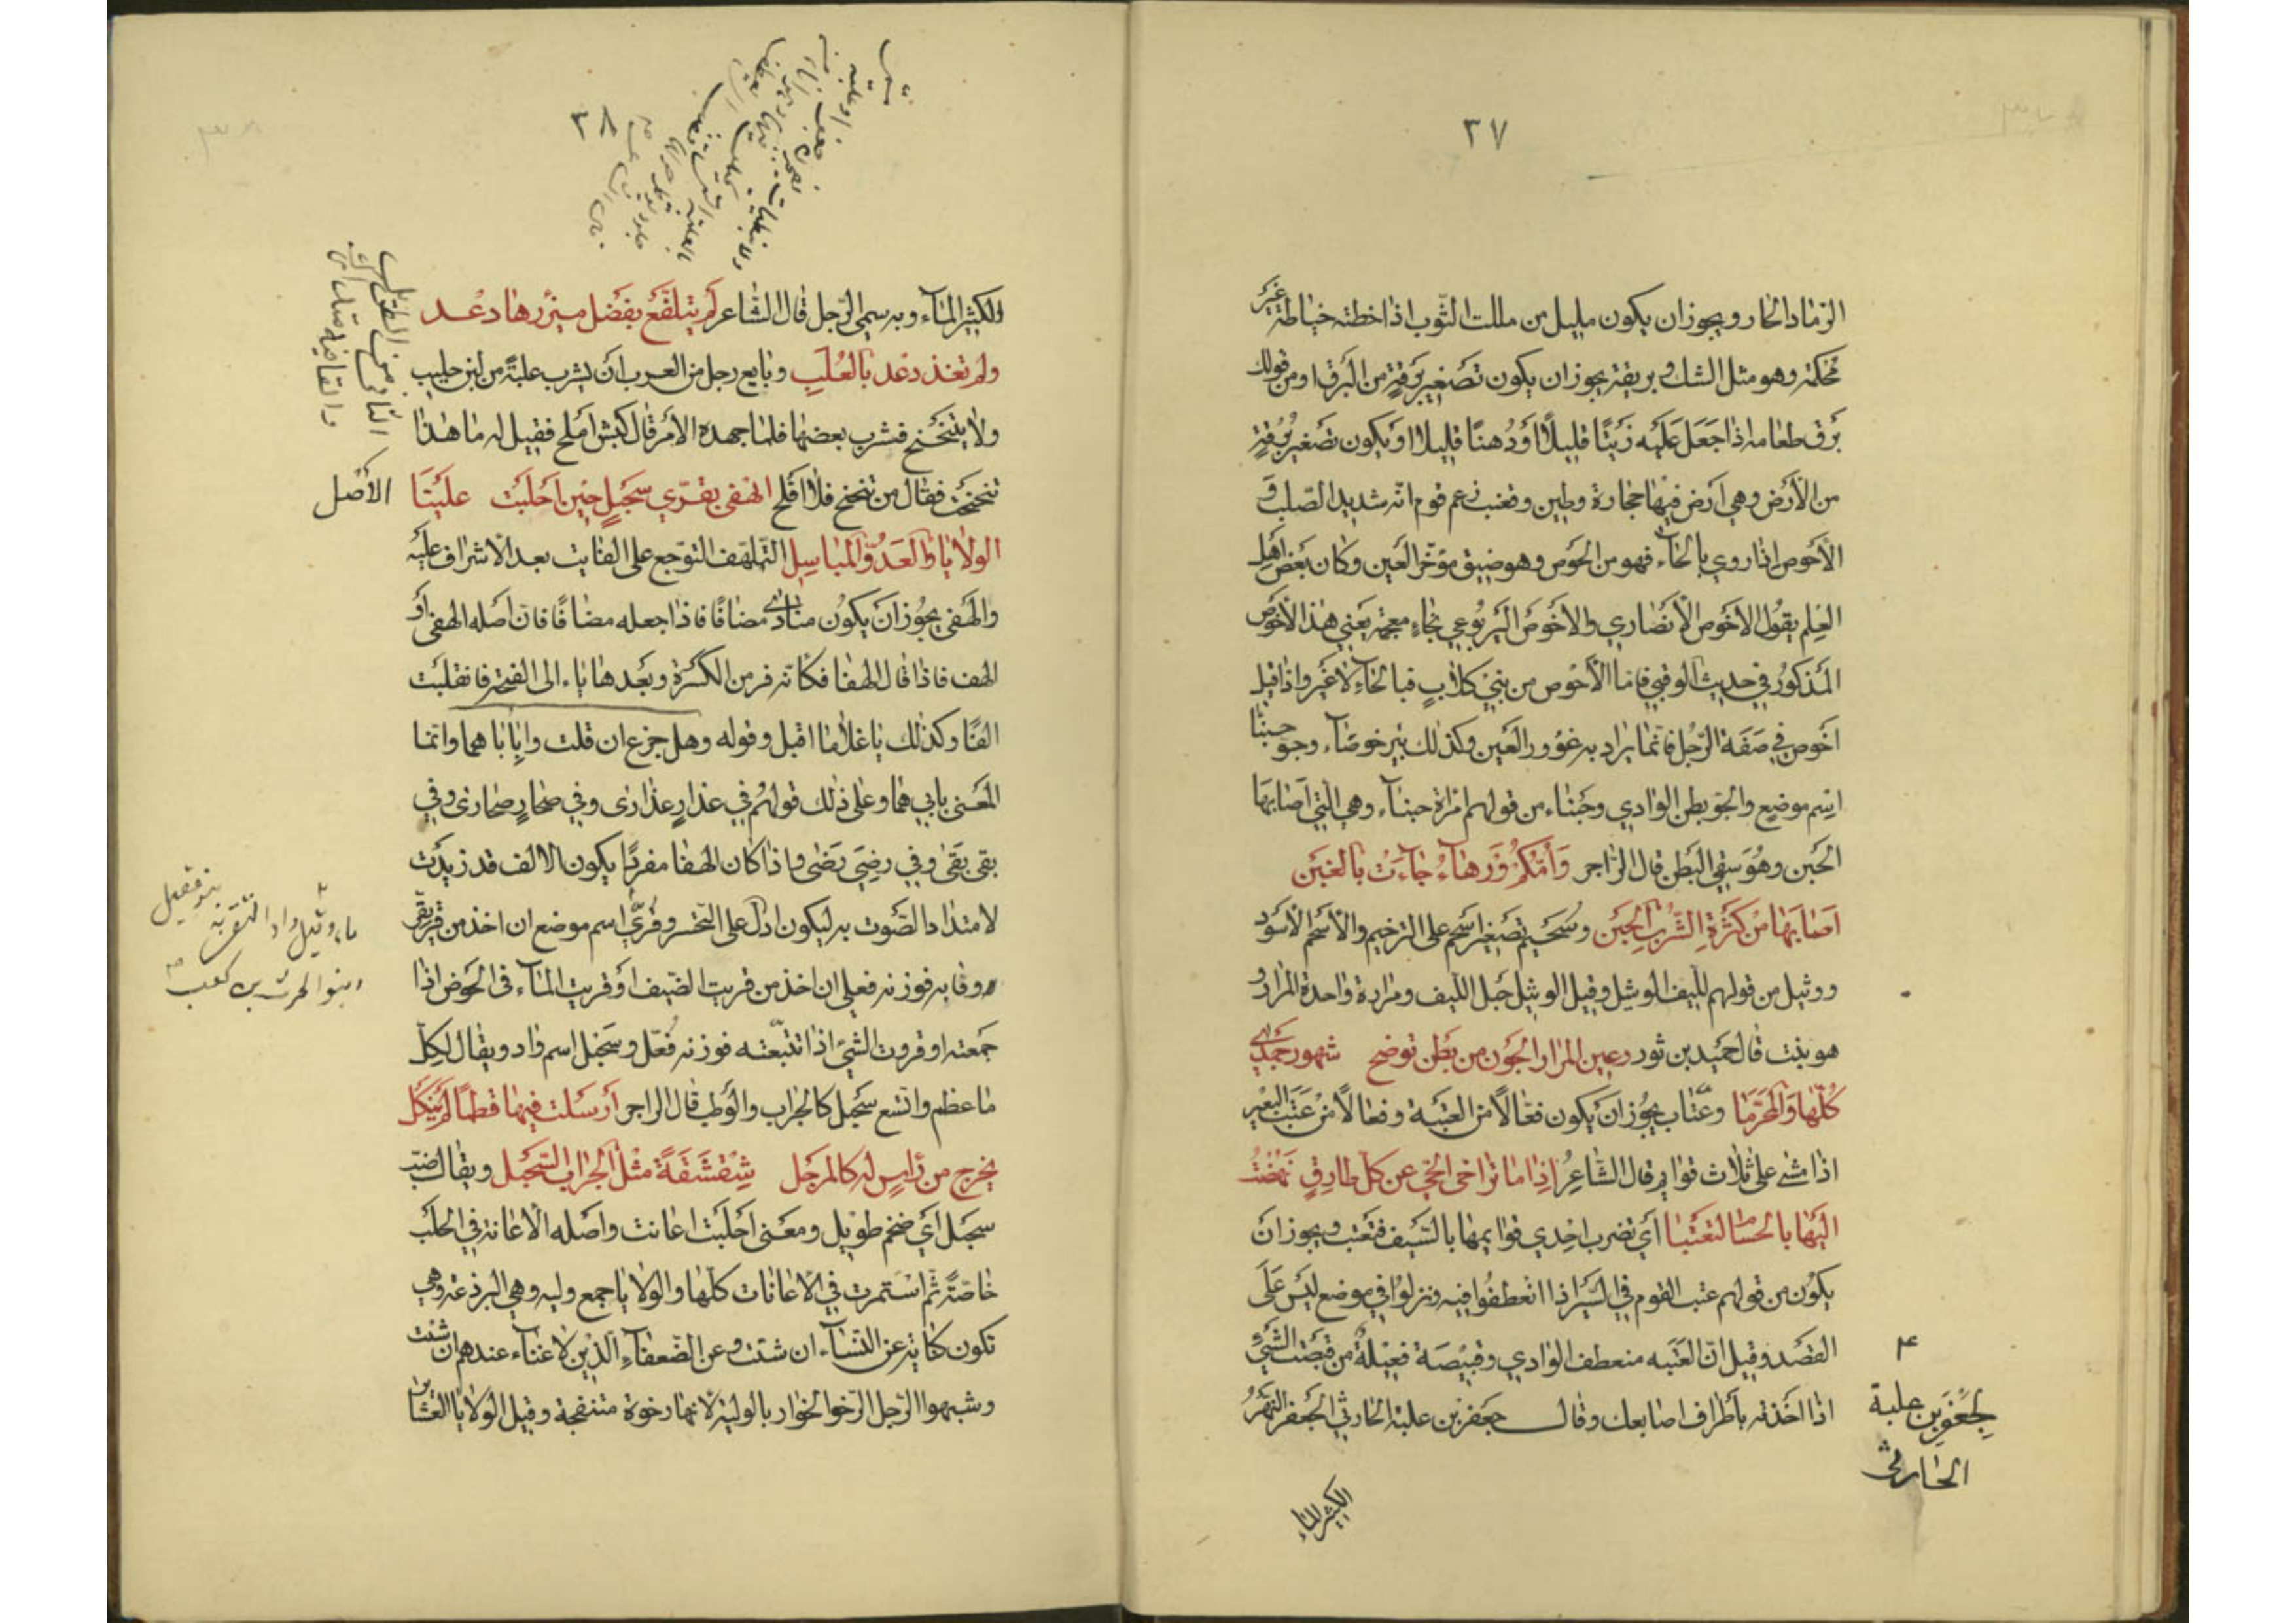 ٢٧
الرماد الحار ويجوز ان يكون مليل من مللت الثوب اذا خطته خياطة غير
محكمة وهو مثل الشك وبريقة يجوز ان يكون تصغير برقة من البرق او من قولك
برق طعامه اذا جعل عليه زيتا قليلا او دهنا قليلا او يكون تصغير برقة
من الأرض وهي ارض فيها حجارة وطين وقعنب زعم قوم انه شديد الصلب و
الأحوص اذا روي بالحاء فهو من الحوص وهو ضيق مؤخر العين وكان بعض اهل
العلم يقول الاخوص الأنصاري والاخوص اليربوعي بخاء معجمة يعني هذا الأخوص
المذكور في حديث الوقبي فاما الأحوص من بني كلاب فبالحاء لا غير واذا قيل
اخوص في صفة الرجل فانما يراد به غوور العين وكذلك بير خوصاء وجو حبنا
اسم موضع والجو بطن الوادي وحبناء من قولهم امراة حبناء وهي التي اصابها
الحبن وهو سقي البطن قال الراجز وأمكم ورهاء جاءت بالغبن
اصابها من كثرة الشرب الحبن وسحيم تصغير اسحم على الترخيم والأسحم الأسود
ووثيل من قولهم لليف الوثيل وقيل الوثيل حبل الليف ومرارة واحدة المرار و
هو بنت قال حميد بن ثور رعين المرار الجون من بطن توضح شهور جمادى
كلها والمحرما وعتاب يجوز ان يكون فعالا من العتبة وفعالا من عتب البعير
اذا مشى على ثلاث قوايم قال الشاعر اذا ما تراخى الحي عن كل طارق نهضت
اليها بالحسام لتعتبا أي تضرب احدي قوايمها بالسيف فتعتب ويجوز ان
يكون من قولهم عتب القوم في السير اذا انعطفوا فيه ونزلوا في موضع ليس على
القصد وقيل ان العتبه منعطف الوادي وقبيصة فعيلة من قبصت الشئ
اذا اخذته بأطراف اصابعك وقال جعفر بن علبة الحارثي الجعفر النهر
٤
لجعفر بن علبة
الحارثي
الكثير الماء
٣٨
الكثير الماء وبه سمي الرجل قال الشاعر لم يتلفع بفضل ميزرها دعد
ولم تغذ دعد بالعلب وبايع رجل من العرب ان يشرب علبة من لبن حليب
ولا يتنحنح فشرب بعضها فلما جهده الأمر قال كبش املح فقيل له ما هذا
تنحنحت فقال من تنحنح فلا افلح الهفى بقرى سحبل حين احلبت علينا
الأصل
الولايا والعدو المباسل التلهف التوجع على الفايت بعد الاشراف عليه
والهفى يجوز ان يكون منادى مضافا فاذا جعله مضافا فان اصله الهفي أو
الهف فاذا قال الهفا فكانه فر من الكسرة وبعدها ياء الى الفتحة فانقلبت
الفا وكذلك يا غلاما اقبل وقوله وهل جزع ان قلت وابابا هما وانما
المعنى بابي هما وعلى ذلك قولهم في عذار عذارى وفي صحار صحارى وفي
بقي بقى وفي رضي رضى واذا كان الهفا مفردا يكون الالف قد زيدت
لامتداد الصوت به ليكون ادل على التحسر وقرى اسم موضع ان اخذ من قريق
وقابه فوزنه فعلى ان اخذ من قريت الضيف او قريت الماء في الحوض اذا
جمعته او قروت الشئ اذا تتبعته فوزنه فعل وسحبل اسم واد ويقال لكل
ما عظم واتسع سحبل كالجراب والوطب قال الراجز ارسلت فيها قطما لم ينكل
يخرج من راس له كالمرجل شقشقة مثل الجراب السحبل ويقال ضب
سحبل اي ضخم طويل ومعنى احلبت اعانت واصله الاعانة في الحلب
خاصة ثم استمرت في الاعانات كلها والولايا جمع وليه وهي البرذعة وهي
تكون كناية عن النساء ان شئت وعن الضعفاء الذين لا غناء عندهم ان شئت
وشبهوا الرجل الرخو الخوار بالولية لانها رخوة متنفجة وقيل الولايا العشاير
بنو عقيل
وبنو الحرث بن كعب